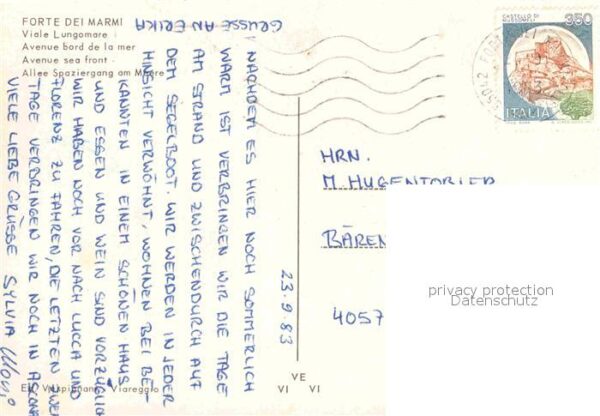 FORTE DEI MARMI
Viale Lungomare
Avenue bord de la mer
Avenue sea front
Allee Spaziergang am Meere
GRÜSSE AN ERIKA
NACHDEM ES HIER NOCH SOMMERLICH
WARM IST VERBRINGEN WIR DIE TAGE
AM STRAND UND ZWISCHENDURCH AUF
DEM SEGELBOOT. WIR WERDEN IN JEDER
HINSICHT VERWÖHNT, WOHNEN BEI BE-
KANNTEN IN EINEM SCHÖNEN HAUS
UND ESSEN UND WEIN SIND VORZÜGLICH
WIR HABEN NOCH VOR NACH LUCCA UND
FLORENZ ZU FAHREN, DIE LETZTEN ZWEI
TAGE VERBRINGEN WIR NOCH IN ASCONA
VIELE LIEBE GRÜSSE SYLVIA
23.9.83
VE
VI VI
Viareggio
CASTELLO DI
350
ITALIA
HRN.
M. HUGENTOBLER
BÄREN
4057
privacy protection
Datenschutz